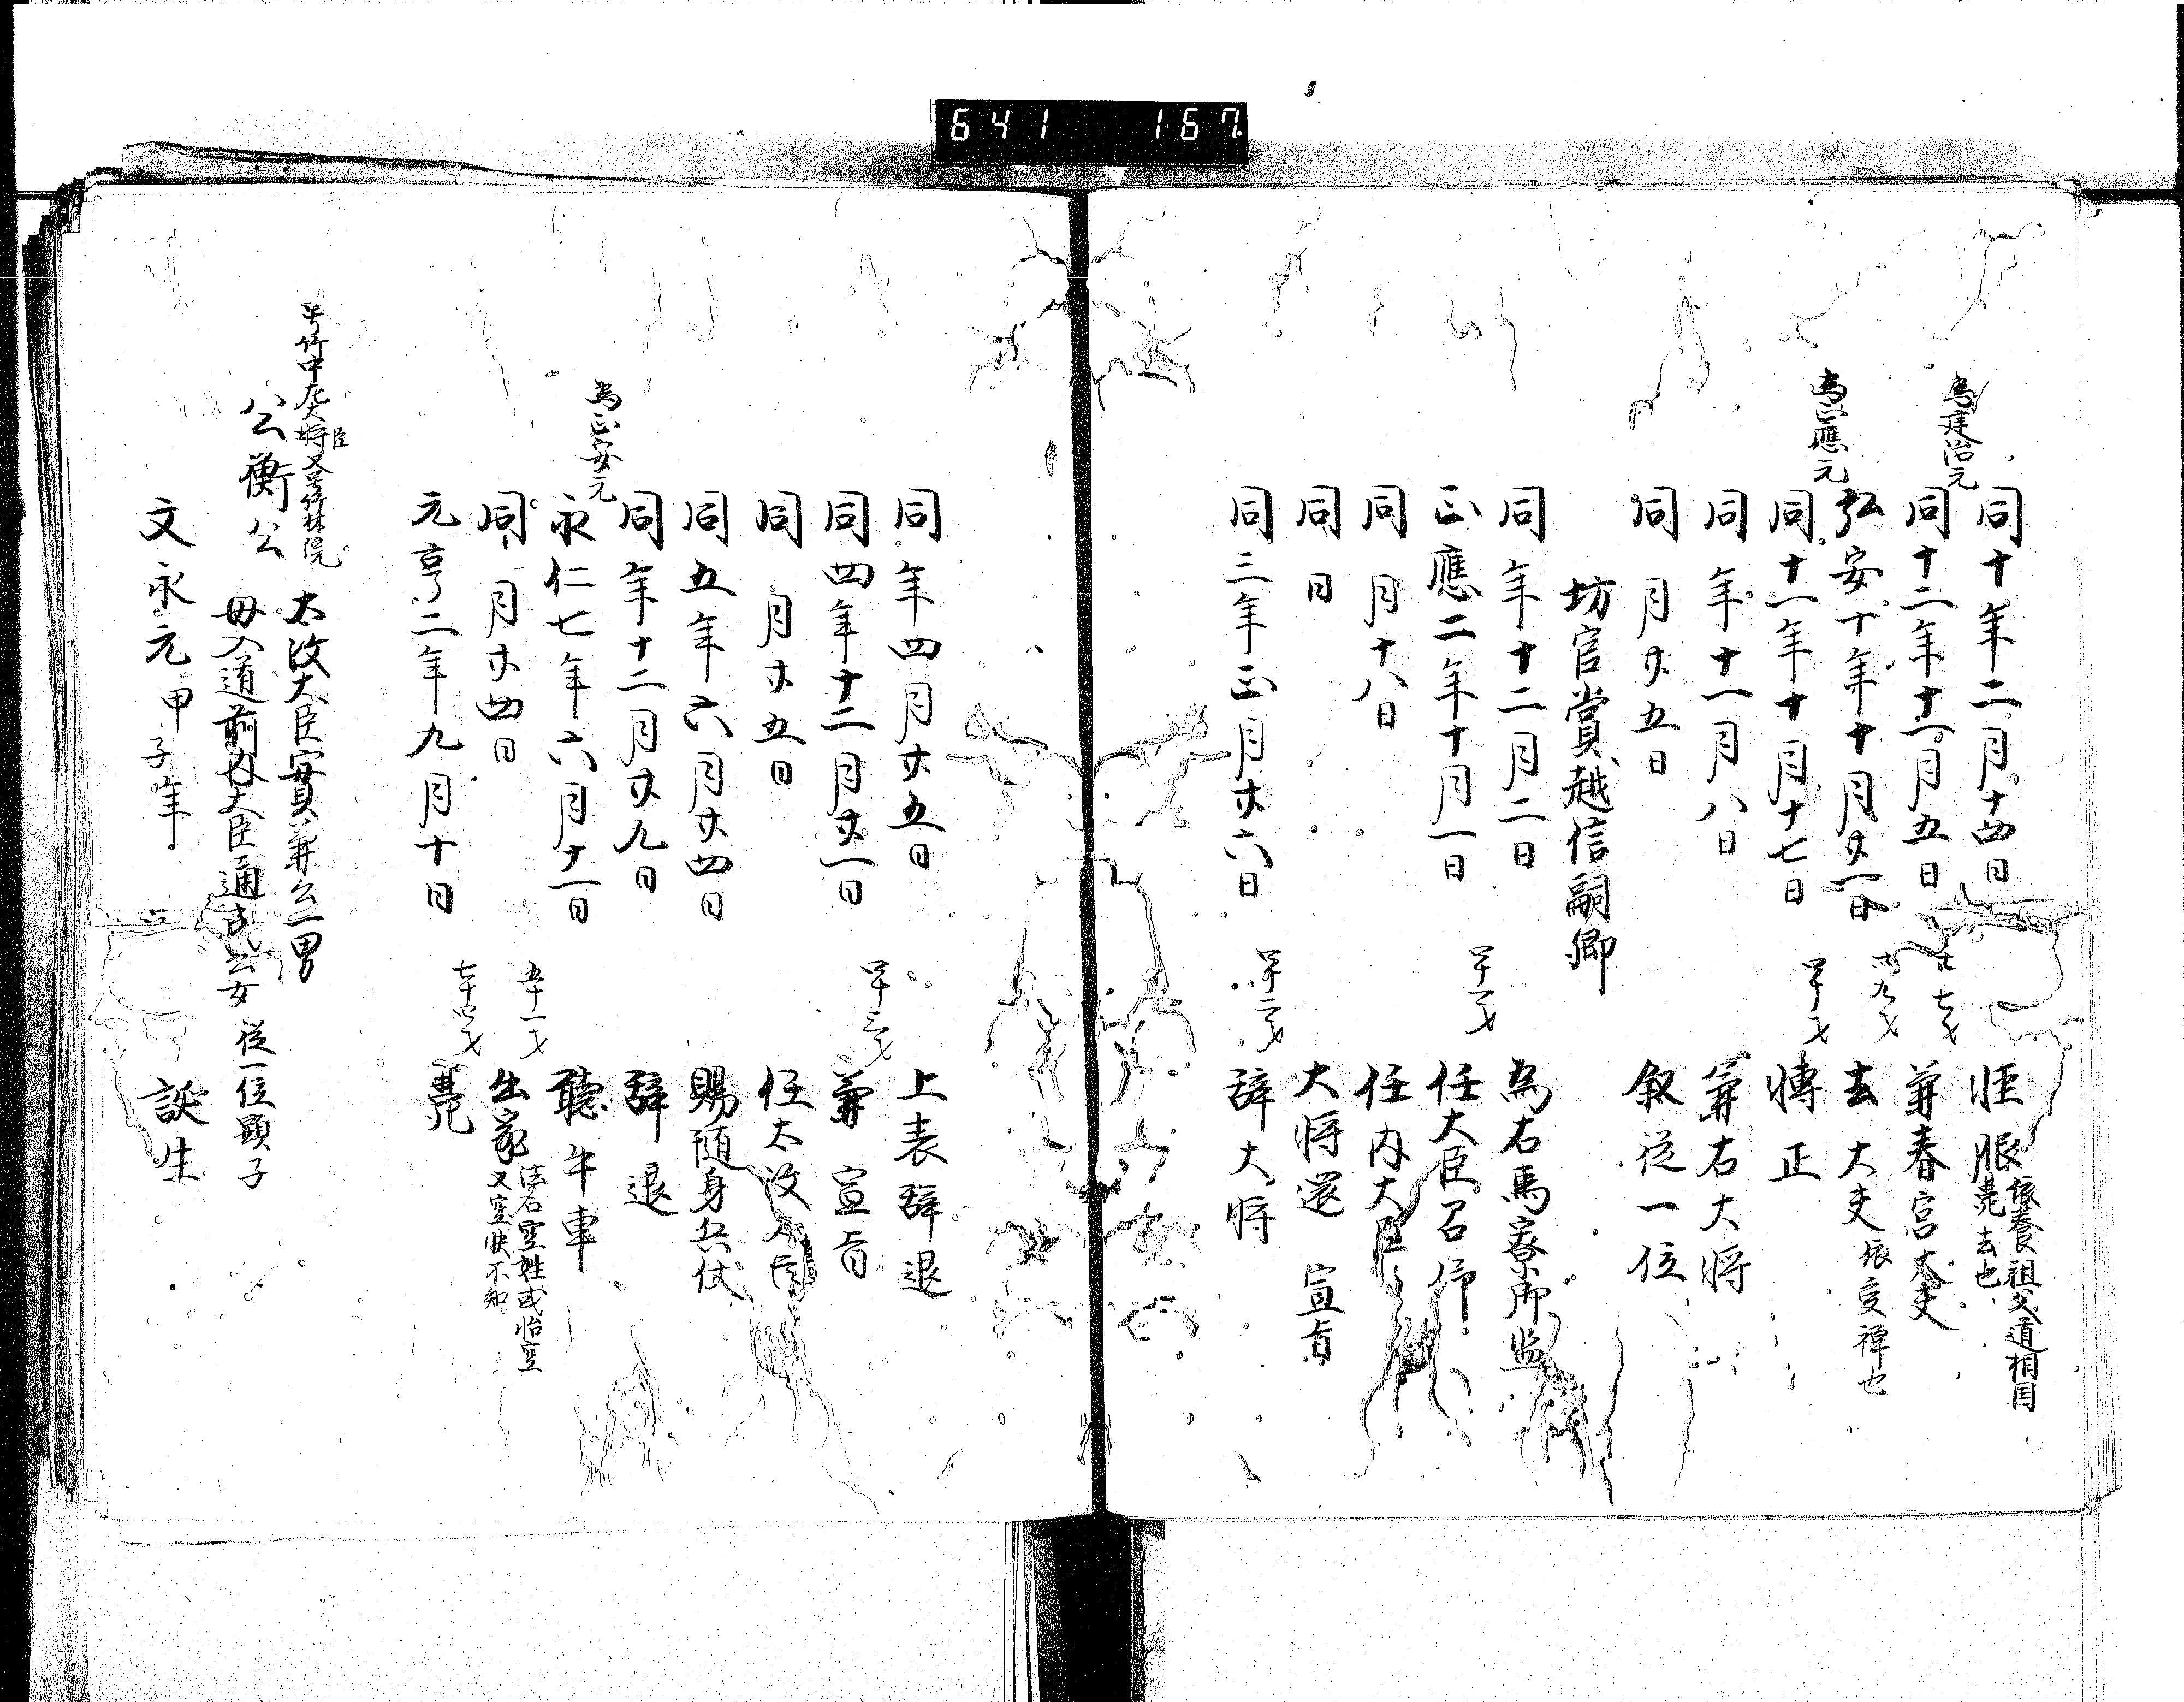 641 167
同十年二月十四日 恇服 依養祖父入道相国
薨去也
為建治元
同十二年十一月五日 廿七才 兼春宮大夫
弘安十年十月廿一日 卅九才 去大夫 依受禅也
為正應元
同十一年十月十七日 四十才 轉正
同年十一月八日 兼右大将
同月廿五日 叙従一位
坊官賞越信嗣卿
同年十二月二日 為右馬寮御監
正應二年十月一日 四十一才 任大臣召仰
同月十八日 任内大臣
同日 大将還宣旨
同三年正月廿六日 四十二才 辞大将
同年四月廿五日 上表辞退
同四年十二月廿一日 四十三才 兼宣旨
同月廿五日 任太政大臣
同五年六月廿四日 賜随身兵仗
同年十二月廿九日 辞退
為正安元
永仁七年六月十一日 聴牛車
同月廿四日 五十一才 出家 法名空性或怡空
又空快不知
元亨二年九月十日 七十四才 薨
号竹中左大将臣又号竹林院
公衡公 太政大臣実兼公一男
母入道前内大臣通成公女 従一位顕子
文永元甲子年 誕生